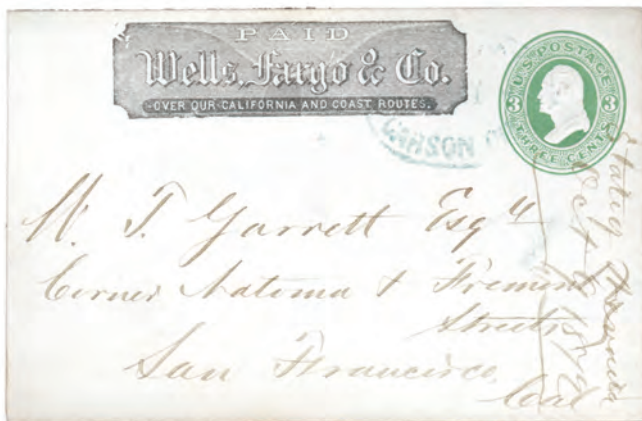 PAID
Wells, Fargo & Co.
OVER OUR CALIFORNIA AND COAST ROUTES.
CARSON
U.S. POSTAGE
3 3
THREE CENTS
W. T. Garrett Esq
Corner Natoma & Fremont
Streets
San Francisco
Cal
Oct 6 1872